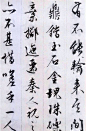 有不能輸來其間
鼎鐺玉石金塊珠礫
棄擲邐迤秦人視之
亦不甚惜嗟乎一人